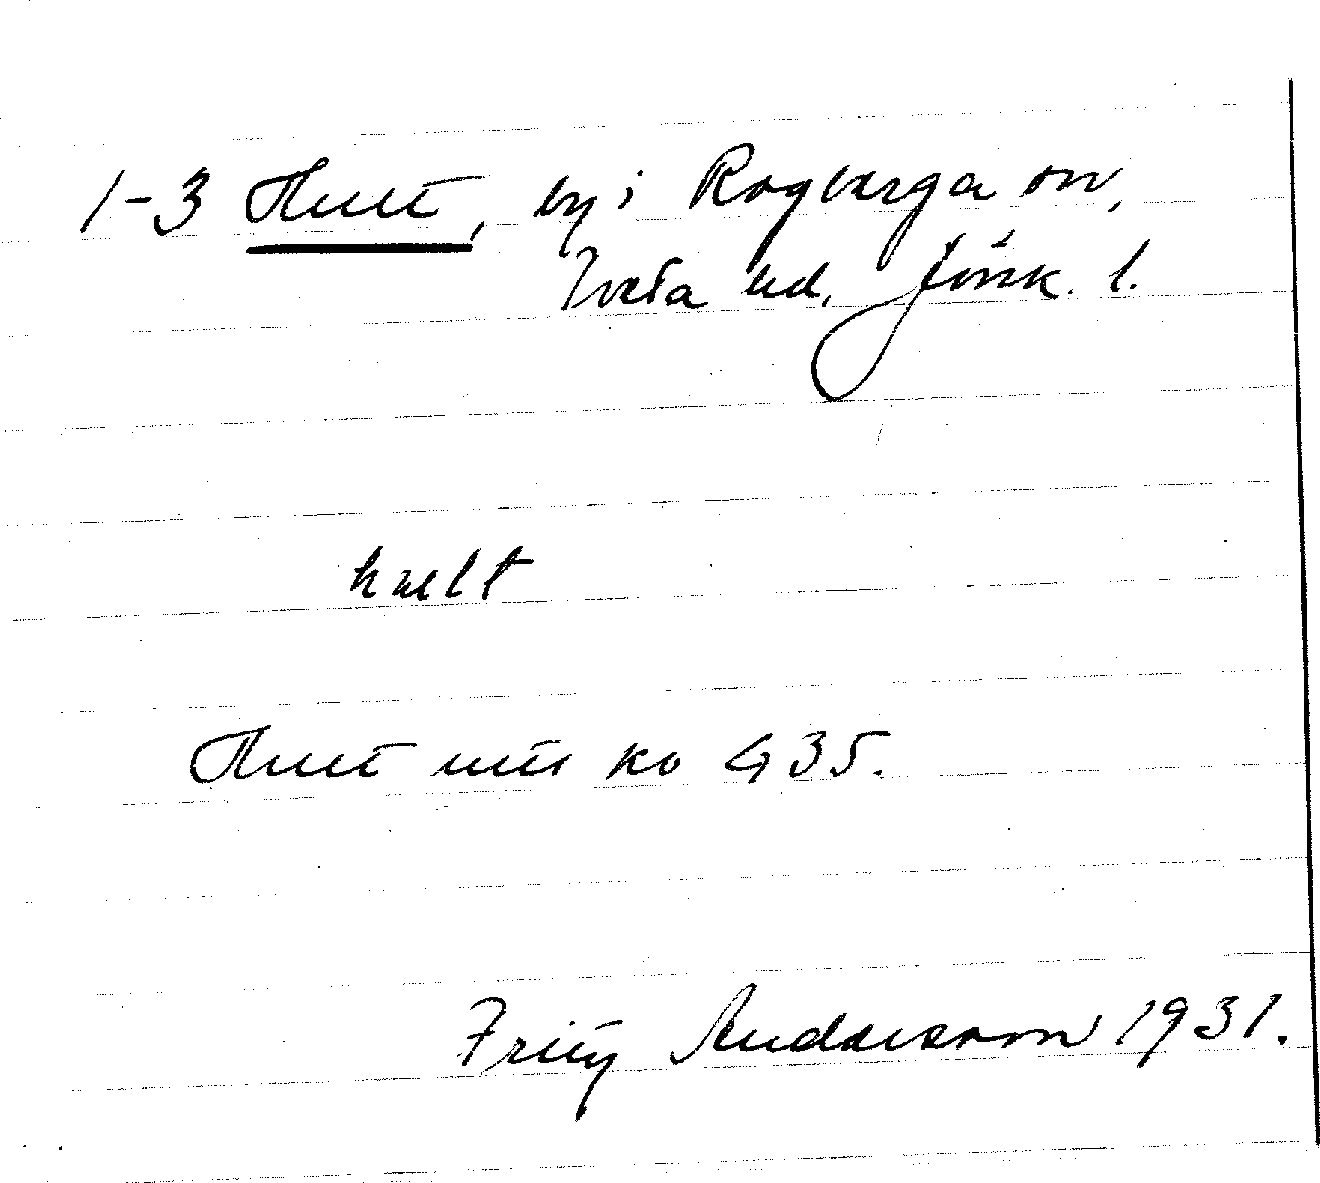 1-3 Hult, by i Rogberga sn,
Tveta hd, Jönk. l.
hult
Hult mtl ko 435.
Fritz Andersson 1931.